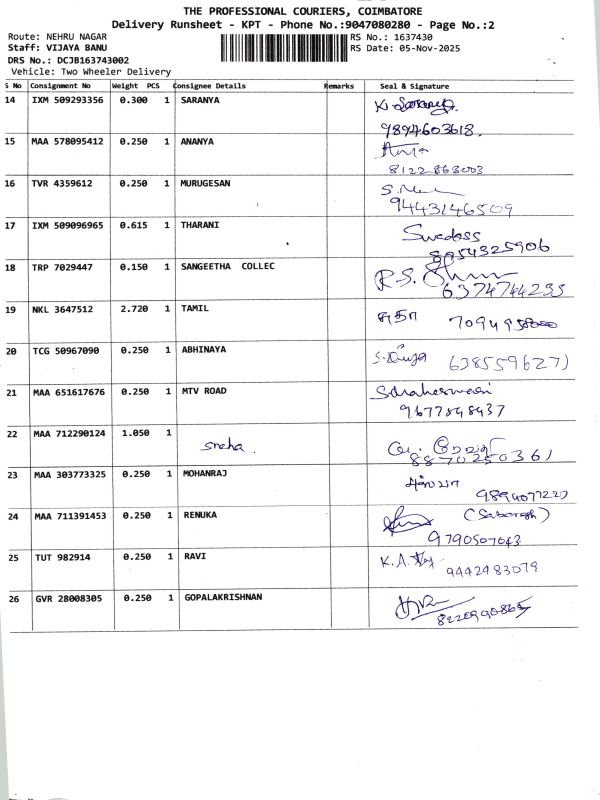 THE PROFESSIONAL COURIERS, COIMBATORE
Delivery Runsheet - KPT - Phone No.:9047080280 - Page No.:2
Route: NEHRU NAGAR RS No.: 1637430
Staff: VIJAYA BANU RS Date: 05-Nov-2025
DRS No.: DCJB163743002
Vehicle: Two Wheeler Delivery
S No Consignment No Weight PCS Consignee Details Remarks Seal & Signature
14 IXM 509293356 0.300 1 SARANYA K. Saranya
9894603618.
15 MAA 578095412 0.250 1 ANANYA
8122863003
16 TVR 4359612 0.250 1 MURUGESAN
9443146509
17 IXM 509096965 0.615 1 THARANI
8954325906
18 TRP 7029447 0.150 1 SANGEETHA COLLEC R.S.
6374744255
19 NKL 3647512 2.720 1 TAMIL
20 TCG 50967090 0.250 1 ABHINAYA 6385596271
21 MAA 651617676 0.250 1 MTV ROAD
9677848437
22 MAA 712290124 1.050 1
sneha.
8870250361
23 MAA 303773325 0.250 1 MOHANRAJ
24 MAA 711391453 0.250 1 RENUKA
9790507043
25 TUT 982914 0.250 1 RAVI K.A.
9442483079
26 GVR 28008305 0.250 1 GOPALAKRISHNAN